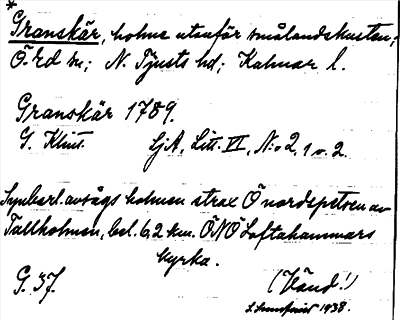 *
Granskär, holme utanför smålandskusten;
Ö. Ed sn; N. Tjusts hd; Kalmar l.
Granskär 1789.
G. Klint. SjA, Litt. VI, N:o 2, 1 o. 2.
Synbarl. avsågs holmen strax Ö nordspetsen av
Tallholmen, bel. 6,2 km. ÖNÖ Loftahammars
kyrka.
G. 37. (Vänd!)
1938.